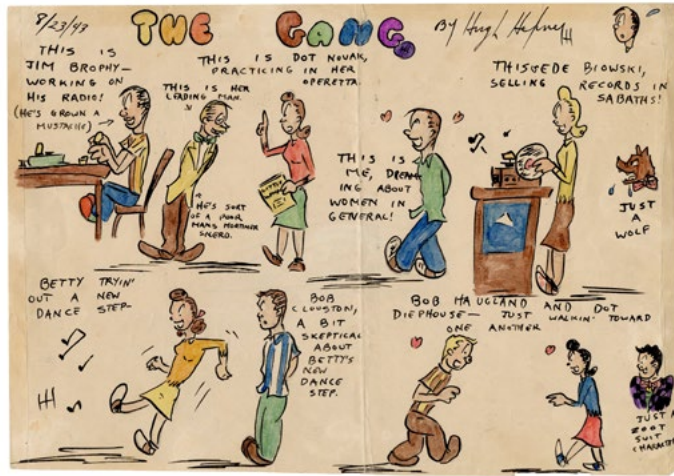 8/23/43
THE GANG
By Hugh Hefner
HH
THIS IS
JIM BROPHY—
WORKING ON
HIS RADIO!
(HE'S GROWN A
MUSTACHE)
THIS IS DOT NOVAK,
PRACTICING IN HER
OPERETTA.
THIS IS HER
LEADING MAN.
HE'S SORT
OF A POOR
MANS MORTIMER
SNERD.
THIS IS
ME, DREAM-
ING ABOUT
WOMEN IN
GENERAL!
THIS EDE BIOWSKI,
SELLING RECORDS IN
SABATHS!
JUST
A
WOLF
BETTY TRYIN'
OUT A NEW
DANCE STEP-
HH
BOB
CLOUSTON,
A BIT
SKEPTICAL
ABOUT
BETTY'S
NEW
DANCE
STEP.
BOB HAUGLAND AND DOT
DIEPHOUSE— JUST WALKIN' TOWARD
ONE ANOTHER
JUST A
ZOOT
SUIT
CHARACTER